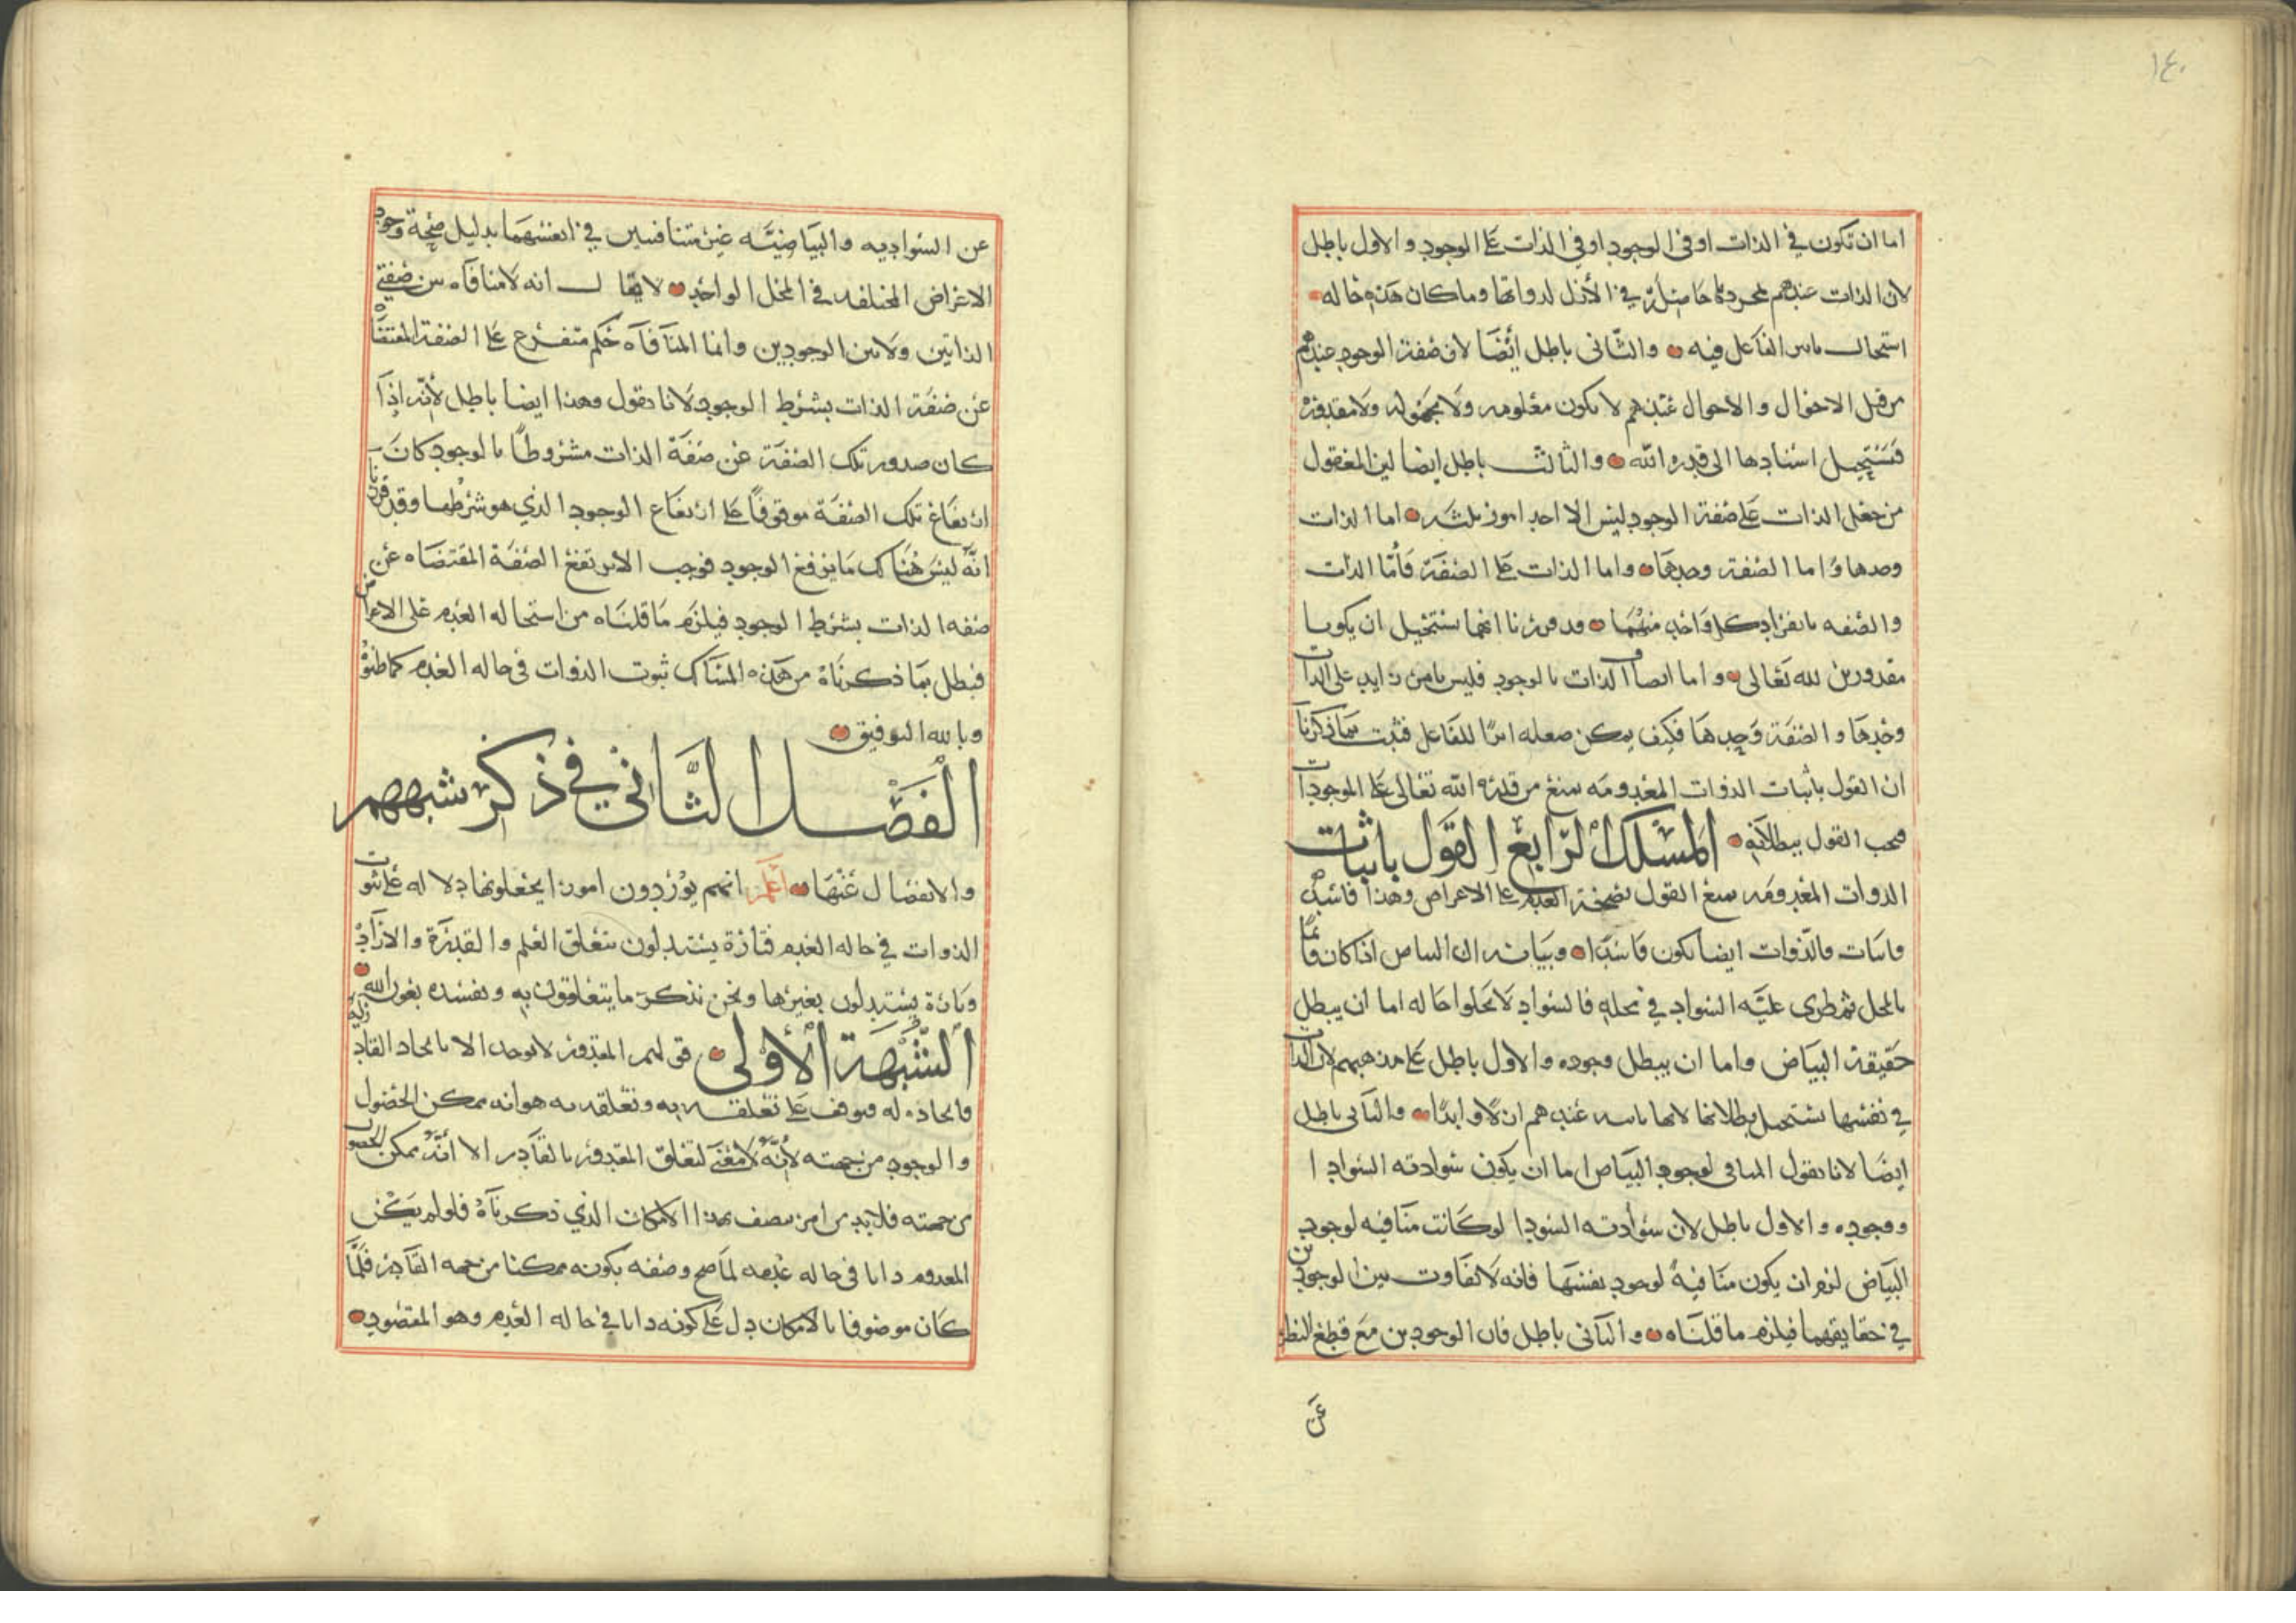 ١٤٠
اما ان تكون في الذات او في الوجود او في الذات على الوجود والاول باطل
لان الذات عندهم بمجردها حاصلة في الازل لذواتها وما كان هذه حاله
استحال تاثير الفاعل فيه والثاني باطل ايضا لان صفة الوجود عندهم
من قبيل الاحوال والاحوال عندهم لا تكون معلومه ولا مجهوله ولا مقدوره
فتستحيل اسنادها الى قدره الله والثالث باطل ايضا لين المعقول
من جعل الذات على صفة الوجود ليس الا احد امور ثلثه اما الذات
وحدها واما الصفة وحدها واما الذات على الصفة فاما الذات
والصفه بانفراد كل واحد منهما وقد قررنا انهما يستحيل ان يكونا
مقدورين لله تعالى واما اتصاف الذات بالوجود فليس بامر زايد على الذات
وحدها والصفة وحدها فكيف يمكن جعله اثرا للفاعل فثبت بما ذكرنا
ان القول باثبات الذوات المعدومه يمنع من قدرة الله تعالى على الموجودات
فيجب القول ببطلانه المسلك الرابع القول باثبات
الذوات المعدومه يمنع القول بصحة العدم على الاعراض وهذا فاسد
فاثبات الذوات ايضا يكون فاسدا وبيانه ان البياض اذا كان قائما
بالمحل ثم طرى عليه السواد في محله فالسواد لا يخلوا حاله اما ان يبطل
حقيقة البياض واما ان يبطل وجوده والاول باطل على مذهبهم لان الذات
في نفسها يستحيل بطلانها لانها ثابته عندهم ازلا وابدا والثاني باطل
ايضا لانا نقول المنافي لوجود البياض اما ان يكون سوادته السوادا
ووجوده والاول باطل لان سوادته السودا لو كانت منافيه لوجود
البياض لزم ان يكون منافية لوجود نفسها فانه لا تفاوت بين الوجودين
في حقايقهما فيلزم ما قلناه والثاني باطل فان الوجودين مع قطع النظر
عن
عن السواديه والبياضيه غير متنافيين في انفسهما بدليل صحة وجود
الاعراض المختلفه في المحل الواحد لا يقال انه لا منافاه بين صفتي
الذاتين ولا بين الوجودين وانما المنافاه حكم متفرع على الصفة المقتضاه
عن صفة الذات بشرط الوجود لانا نقول وهذا ايضا باطل لانه اذا
كان صدور تلك الصفة عن صفة الذات مشروطا بالوجود كان
ارتفاع تلك الصفة موقوفا على ارتفاع الوجود الذي هو شرطها وقد قررنا
انه ليس هناك ما يرفع الوجود فوجب الا يرتفع الصفة المقتضاه عن
صفه الذات بشرط الوجود فيلزم ما قلناه من استحاله العدم على الاعراض
فبطل بما ذكرناه من هذه المسالك ثبوت الذوات في حاله العدم كما ظنوه
وبالله التوفيق
الفصل الثاني في ذكر شبههم
والانفصال عنها اعلم انهم يوردون امورا يجعلونها دلاله على ثبوت
الذوات في حاله العدم فتارة يستدلون بتعلق العلم والقدرة والارادة
وتارة يستدلون بغيرها ونحن نذكر ما يتعلقون به ونفسده بعون الله
الشبهة الاولى قولهم المقدور لا يوجد الا بايجاد القادر
فايجاده له موقف على تعلقه به وتعلقه به هو انه ممكن الحصول
والوجود من جهته لانه لا معنى لتعلق المقدور بالقادر الا انه ممكن الحصول
من جهته فلابد من امر متصف بهذا الامكان الذي ذكرناه فلو لم يكن
المعدوم ذاتا في حاله عدمه لما صح وصفه بكونه ممكنا من جهه القادر فلما
كان موصوفا بالامكان دل على كونه ذاتا في حاله العدم وهو المقصود